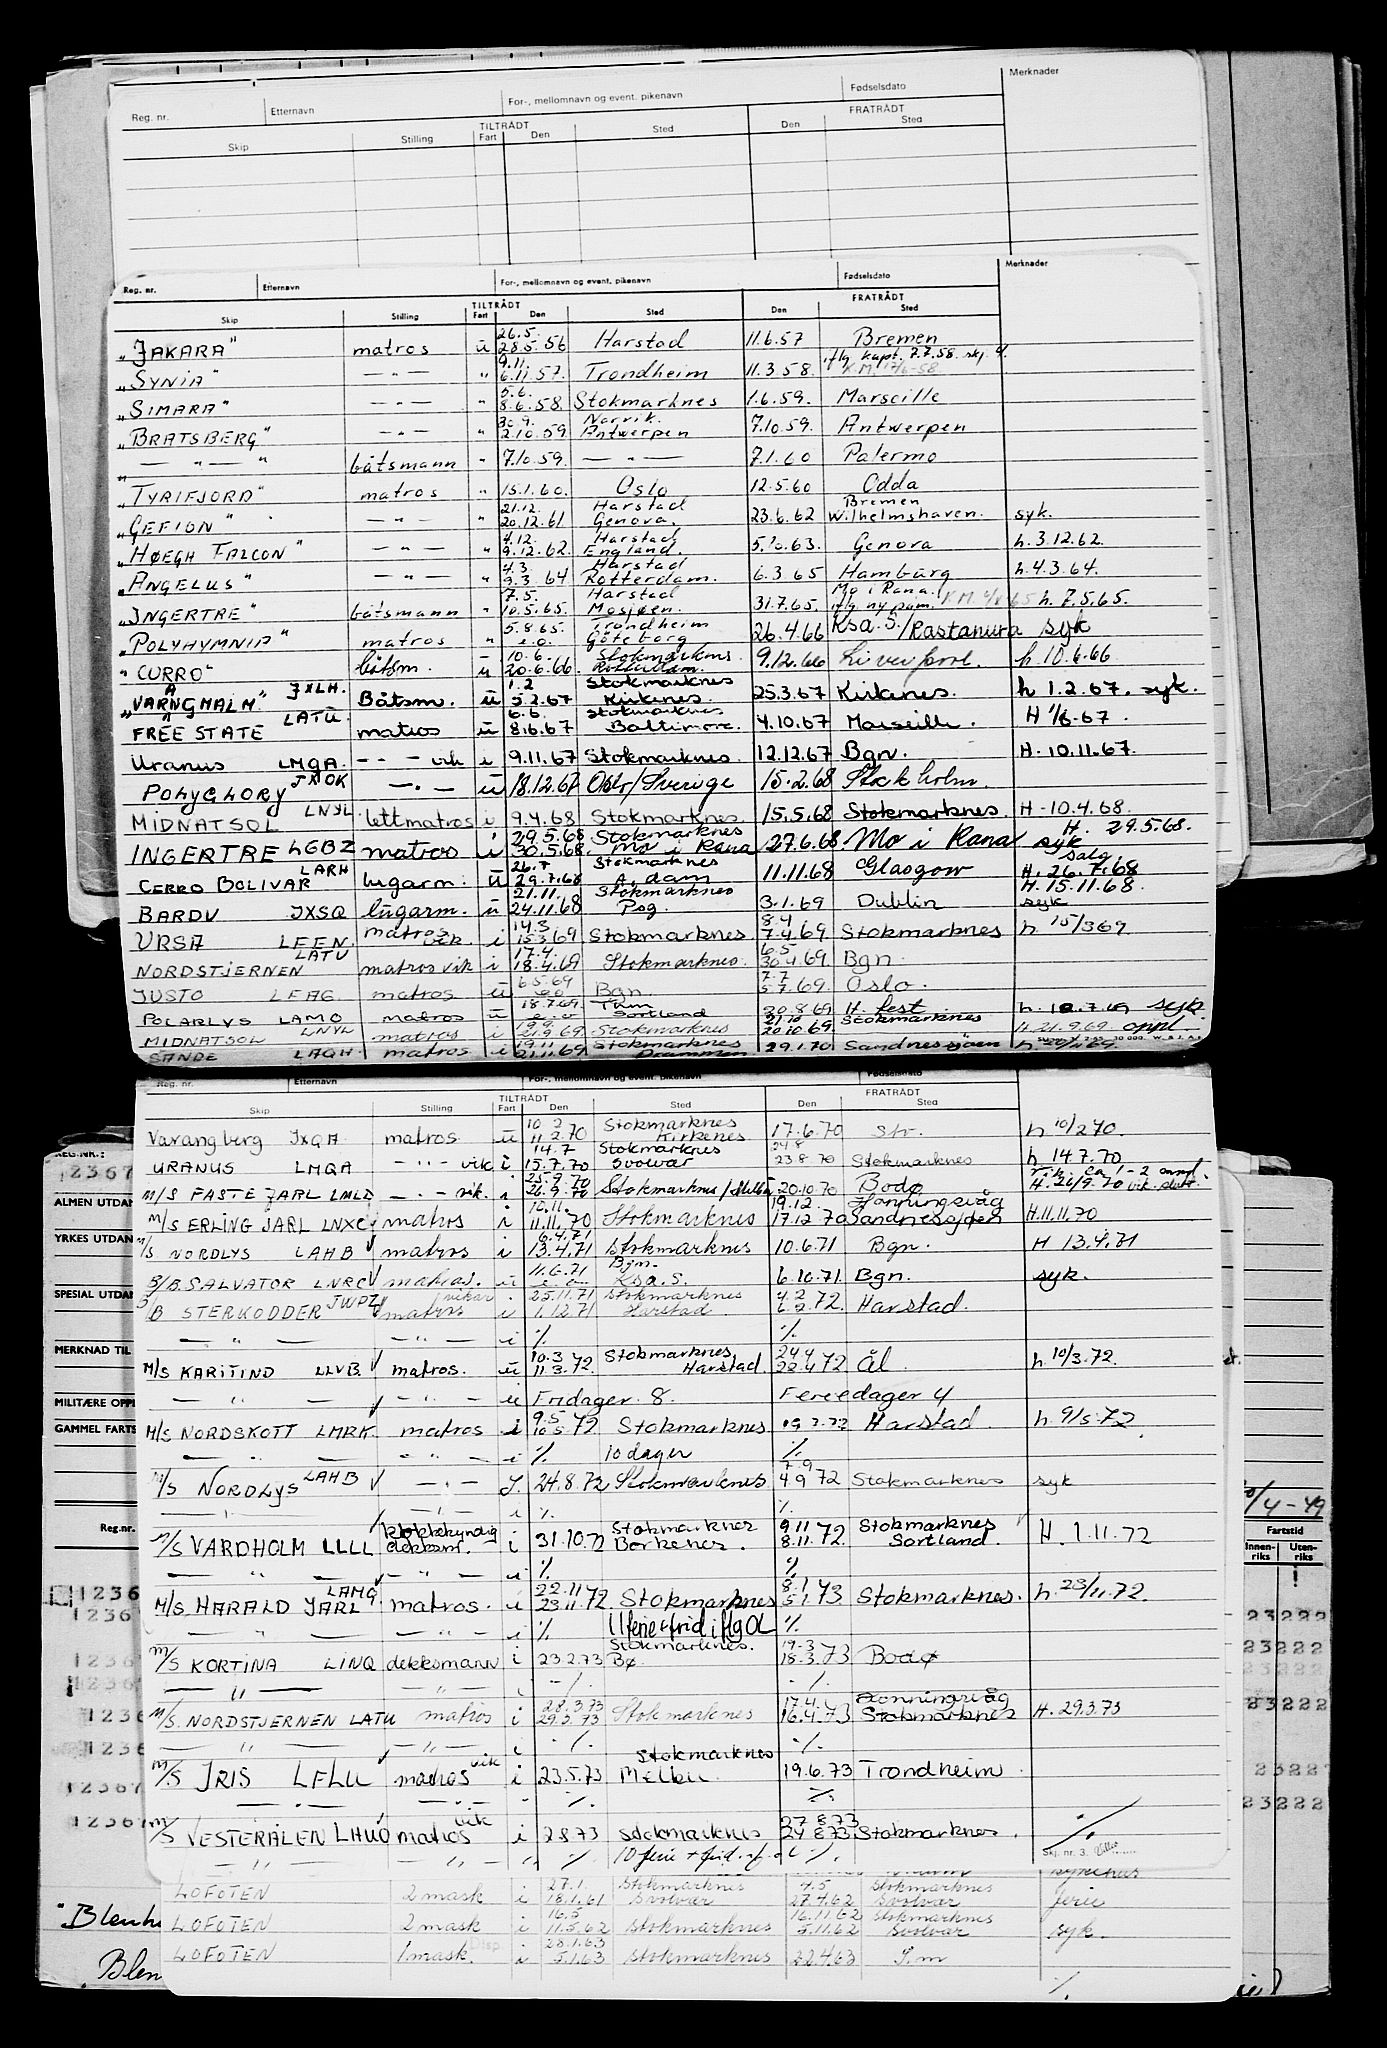 Reg. nr. Etternavn For-, mellomnavn og event. pikenavn Fødselsdato Merknader
Skip Stilling TILTRÅDT Fart Den Sted Den FRATRÅDT Sted
Reg. nr. Etternavn For-, mellomnavn og event. pikenavn Fødselsdato Merknader
Skip Stilling TILTRÅDT Fart Den Sted Den FRATRÅDT Sted
"JAKARA" matros u 26.5. 28.5.56 Harstad 11.6.57 Bremen
"SYNIA" — " — " 9.11. 6.11.57. Trondheim 11.3.58. iflg kapt. 7.7.58. skj. 4.
"SIMARA" — " — " 5.6. 8.6.58. Stokmarknes 1.6.59. Marseille
"BRATSBERG" — " — " 30.9. 2.10.59 Narvik. Antwerpen 7.10.59. Antwerpen
— " — " båtsmann " 7.10.59. — " — 7.1.60 Palermo
"TYRIFJORD" matros " 15.1.60. Oslo 12.5.60 Odda
"GEFION" — " — " 21.12. 20.12.61 Harstad Genova. 23.6.62 Bremen Wilhelmshaven. syk.
"HØEGH FALCON" — " — " 4.12. 9.12.62. Harstad England. 5.10.63. Genova h. 3.12.62.
"ANGELUS" — " — " 4.3. 9.3.64 Harstad Rotterdam. 6.3.65 Hamburg h. 4.3.64.
"INGERTRE" båtsmann " 7.5. 10.5.65. Harstad Mosjøen. 31.7.65. Mo i Rana. iflg ny pam. h. 7.5.65.
"POLYHYMNIA" matros " 5.8.65. e.o. Trondheim Göteborg 26.4.66 Ksa. S./Rastanura syk
"CURRO" båtsm. u 10.6. 20.6.66 Stokmarkns. Rotterdam. 9.12.66 Liverpool. h 10.6.66
"VARANGMALM" JXLH. Båtsm. u 1.2 5.2.67 Stokmarknes Kirkenes. 25.3.67 Kirkenes. h 1.2.67. syk.
FREE STATE LATU matros u 6.6. 8.6.67 Stokmarknes Baltimore. 4.10.67 Marseille. H 1/6-67.
Uranus LMQA. — " — vik i 9.11.67 Stokmarknes. 12.12.67 Bgn. H. 10.11.67.
POLYGLORY JXOK — " — u 18.12.67 Oslo/Sverige 15.2.68 Stockholm.
MIDNATSOL LNYL lettmatros i 9.4.68 Stokmarknes. 15.5.68 Stokmarknes. H - 10.4.68.
INGERTRE LGBZ matros i 29.5.68 30.5.68. Stokmarknes Mo i Rana 27.6.68. Mo i Rana H. 29.5.68. syk
CERRO BOLIVAR LARH lugarm. u 26.7 29.7.68 Stokmarknes A.dam 11.11.68 Glasgow salg H. 26.7.68
BARDU JXSQ lugarm. u 21.11. 24.11.68 Stokmarknes Psg. 3.1.69 Dublin H. 15.11.68. syk
URSA LEEN matros vik. i 14.3 15.3.69 Stokmarknes. 8.4 7.4.69 Stokmarknes h 15/369
NORDSTJERNEN LATU matros vik i 17.4. 18.4.69 Stokmarknes. 6.5 30.4.69. Bgn.
JUSTO LFAG. matros u 6.5.69 e.o Bgn. 7.7 5.7.69. Oslo.
POLARLYS LAMO matros u 18.7.69. e.o Thm Sortland 20.8.69 H. fest h. 18.7.69 syk
MIDNATSOL LNYL matros i 19.9. 21.9.69 Stokmarknes 21.10 20.10.69. Stokmarknes H. 21.9.69 oppl.
SANDE LAQH matros i 19.11 21.11.69 Stokmarknes Drammen 29.1.70 Sandnessjøen
Reg. nr. Etternavn For-, mellomnavn og event. pikenavn Fødselsdato
Skip Stilling TILTRÅDT Fart Den Sted Den FRATRÅDT Sted
Varangberg JXQA matros u 10 2 11 2.70 Stokmarknes Kirkenes 17.6.70 Str. h 10/2 70.
URANUS LMQA — " — vik i 14.7 15.7.70 Stokmarknes Svolvær 24 8 23 8 70 Stokmarknes h 14.7.70
M/S FASTE JARL LMLD — " — vik. i 25.9.70 26.9.70 Stokmarknes/Melbu 20.10.70 Bodø vik. ca 1-2 mnd.
M/S ERLING JARL LNXC matros i 10.11. 11.11.70 Stokmarknes 19.12. 17.12.70 Honningsvåg Sandnessjøen H. 11.11.70
M/S NORDLYS LAHB matros i 6.4.71 13.4.71 Stokmarknes 10.6.71 Bgn. H 13.4.71
B/B. SALVATOR LNRC matros. u 11.6.71 e.o. Bgn. Ksa. S. 6.10.71. Bgn. syk.
S/B STERKODDER JWPZ vikar matros i 25.11.71 1.12.71 Stokmarknes Harstad. 4.2 6.2.72. Harstad.
— " — — " — i % %
M/S KARITIND LLVB matros. u 10.3. 11.3.72. Stokmarknes Harstad. 24 4 22 4 72 Ål. h 10/3.72.
— " — — " — u Fridager. 8. Feriedager 4
M/S NORDSKOTT LMRK matros i 9.5 10.5.72 Stokmarknes Harstad h. 9/5-72
— " — " i % 10 dager %
M/S NORDLYS LAHB — " — I. 24.8.72 Stokmarknes 7.9 4 9 72 Stokmarknes syk
— " — — " — i % %
M/S VARDHOLM LLLL klokkekyndig dekksm. i 31.10.72 Stokmarknes Borkenes. 9.11 8.11.72. Stokmarknes Sortland. H. 1.11.72
— " — — " — i % %
M/S. HARALD JARL LAMQ matros. i 22.11 23.11.72. Stokmarknes 8.1 5.1.73 Stokmarknes. h. 23/11.72.
— " — — " — i % 11 ferie + frid iflg OL %
M/S KORTINA LINQ dekksmann i 23.2.73 Stokmarknes. Bø. 19-3 18.3.73 Bodø
— " — — " — i % %
M/S. NORDSTJERNEN LATU matros i 28.3.73 29.3.73 Stokmarknes 17.4. 16.4.73 Honningsvåg Stokmarknes H. 29.3.73
— " — — " — i % %
M/S IRIS LFLU matros vik i 23.5.73 Stokmarknes Melbu. 19.6.73 Trondheim
— " — — " — % %
M/S VESTERÅLEN LHUO matros vik i 2 8 73 Stokmarknes 27 8 73 24 8 73 Stokmarknes. %
— " — " — " % 10 ferie + frid. %
Skj. nr. 3.
LOFOTEN 2 mask i 27.1. 18.1.61 Stokmarknes Svolvær 4.5 27.4.62 Stokmarknes Svolvær ferie
LOFOTEN 2 mask i 16.5 11.5.62 Stokmarknes 16.11 62 5.11.62 Stokmarknes Svolvær syk.
LOFOTEN 1 mask. Disp i 28.1.63 5.1.63 Stokmarknes 22.4.63 T.m
%
REG.NR.:
1 2 3 6 7
ALMEN UTDAN
YRKES UTDAN
SPESIAL UTDAN
MERKNAD TIL
MILITÆRE OPP
GAMMEL FARTS
Reg.nr.
"Blenh
Blen
/4-49
Fartstid
Innen-riks Uten-riks
23222
23222
23222
23222
23222